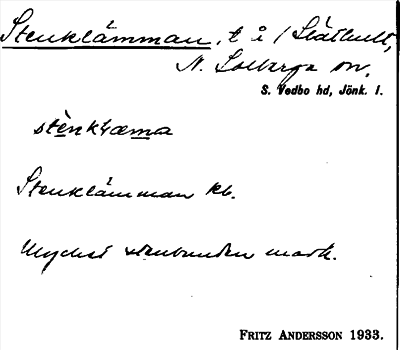 Stenklämman, t å / Släthult,
N. Solberga sn,
S. Vedbo hd, Jönk. l.
stènkłæma
Stenklämman kb.
Mycket stenbunden mark.
FRITZ ANDERSSON 1933.